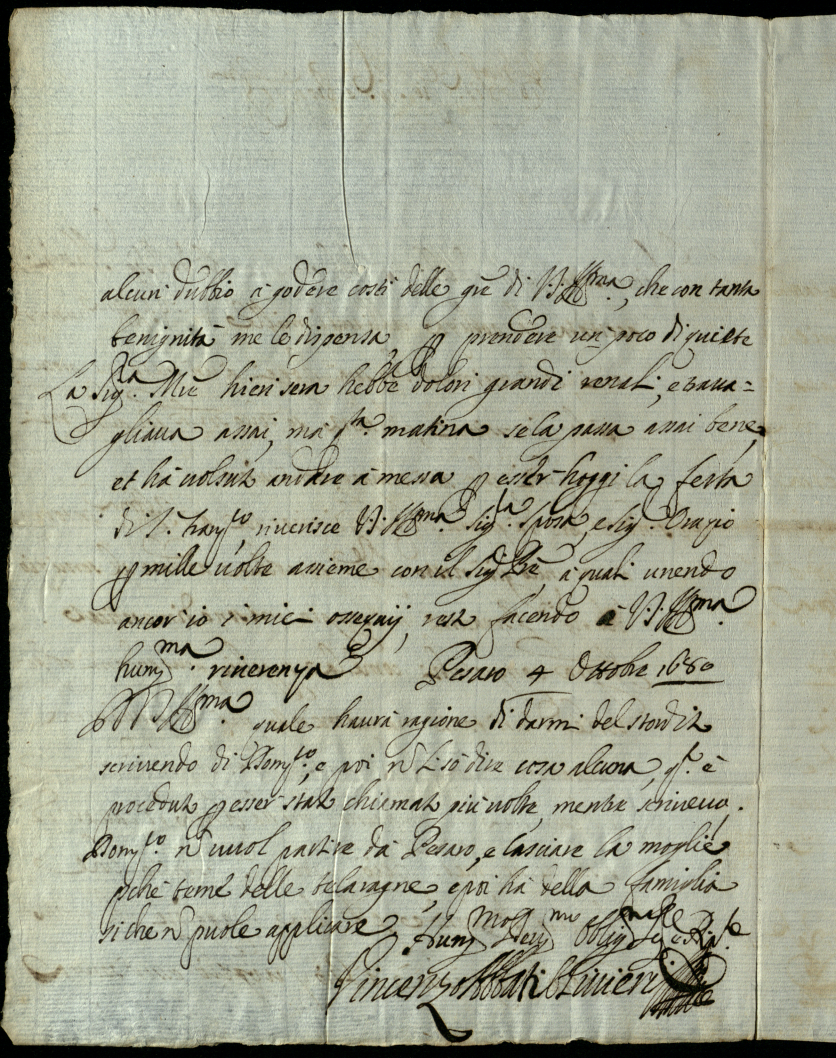 alcun dubbio à godere costì delle grē di V.S. Illma, che con tanta
benignità me le dispensa, p prendere un poco di quiete
La Sigra Mrē hieri sera hebbe dolori grandi renali, e trava=
gliava assai, mà qta matina se la passa assai bene,
et hà volsuto andare à messa p esser hoggi la festa
di S. Franco, riverisce V.S. Illma Sigra Sposa, e Sigr Orazio
p mille volte assieme con il Sigr Prē, à quali unendo
ancor io i miei ossequij, resto facendo à V.S. Illma
humma riverenza Pesaro 4 Ottobre 1680
V.S. Illma quale haurà ragione di darmi del stordito
scrivendo di Domco, e poi ñ li sò dire cosa alcuna, qto è
proceduto p esser stato chiamato più volte, mentre scrivevo.
Domco ñ vuol partire da Pesaro, e lasciare la moglie
pche teme delle telaragne, e poi hà della famiglia
si che ñ puole applicare. Hummo Devmo Obligmo
Vincenzo Abbati Olivieri